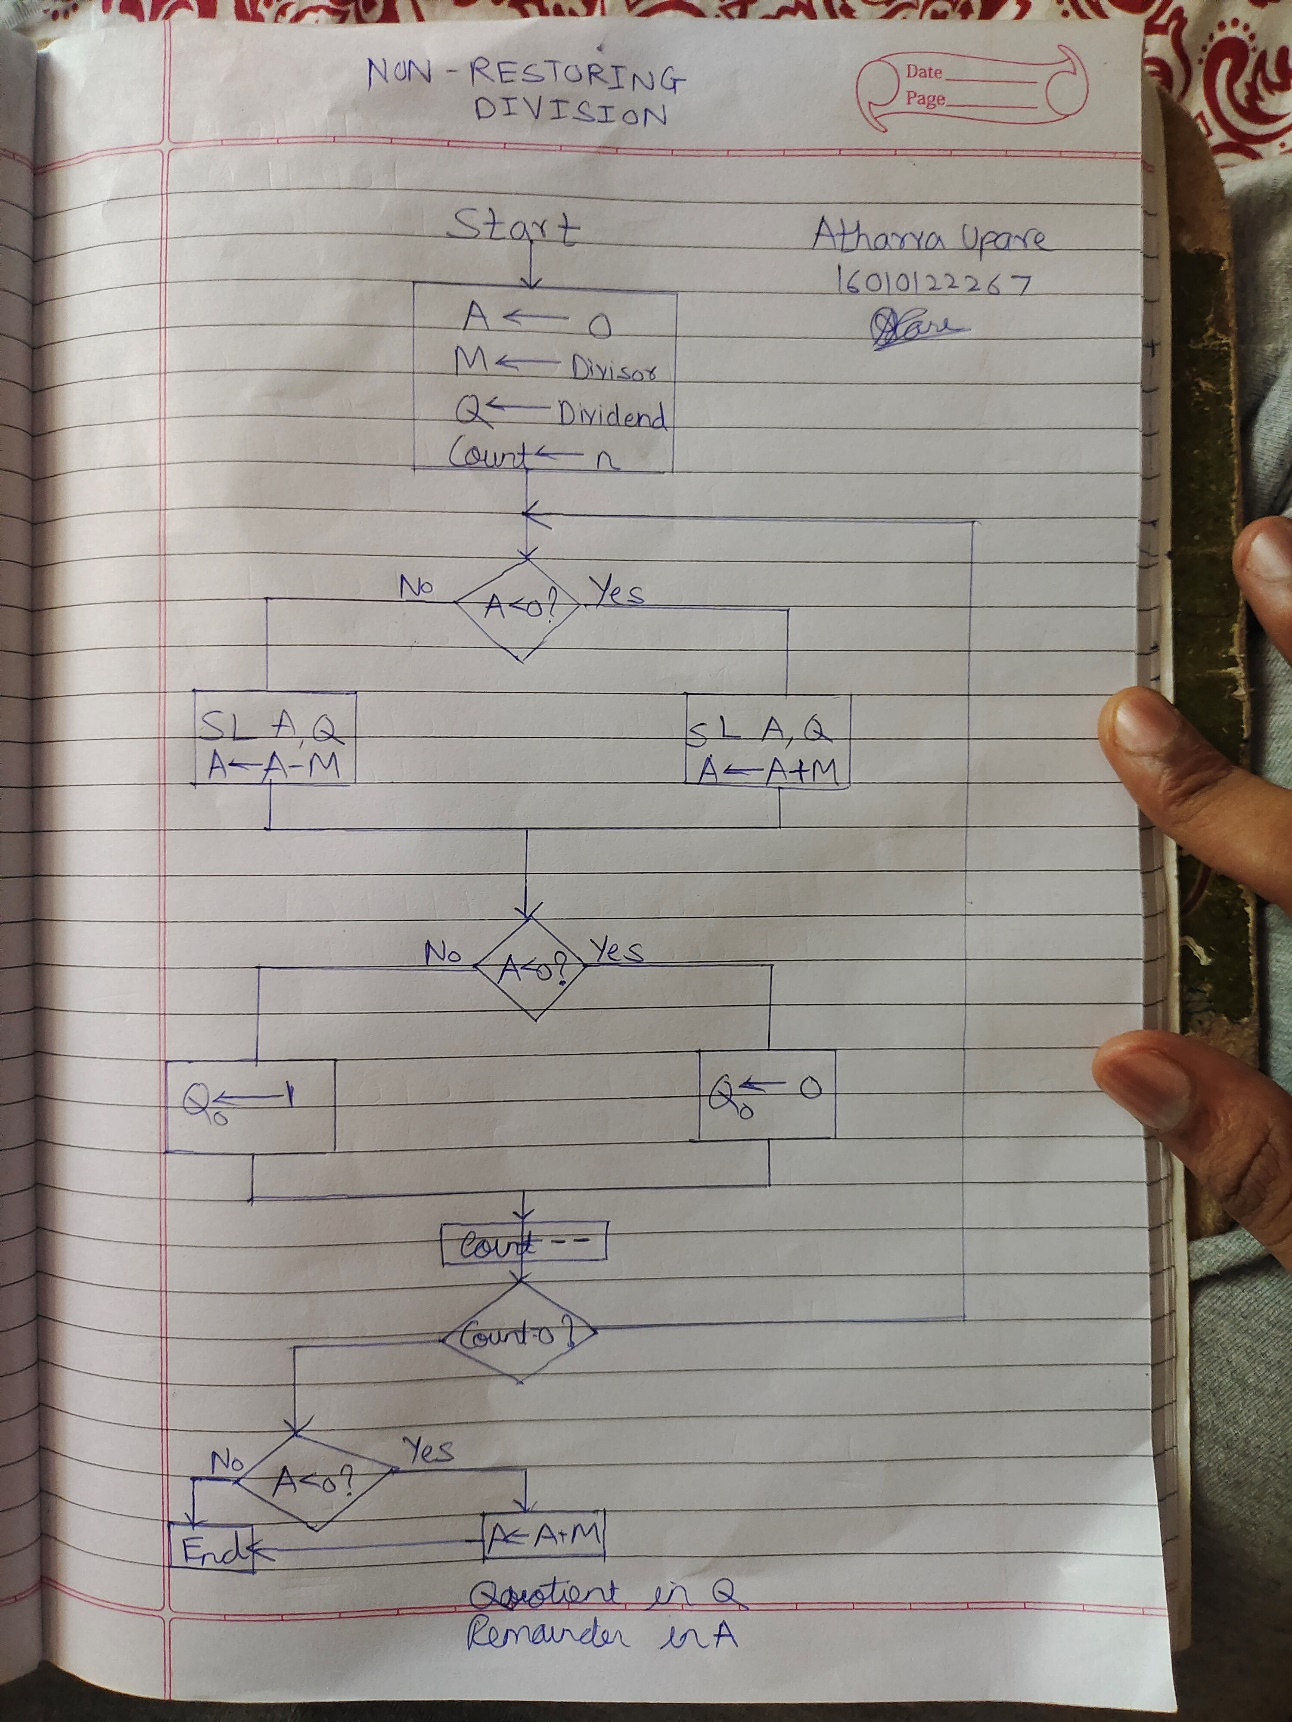 NON-RESTORING
DIVISION
Date
Page
Start
Atharva Upare
16010122267
A ← 0
M ← Divisor
Q ← Dividend
Count ← n
No A<0? Yes
SL A,Q
A←A-M
SL A,Q
A←A+M
No A<0? Yes
Q₀ ← 1
Q₀ ← 0
Count --
Count=0?
No A<0? Yes
End
A← A+M
Quotient in Q
Remainder in A